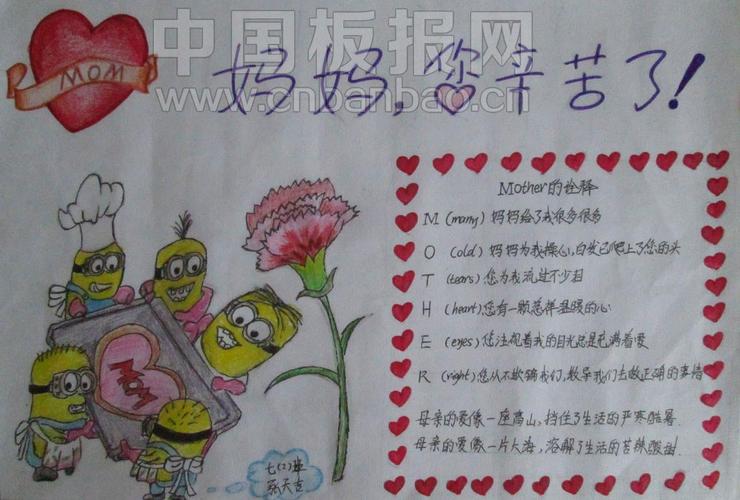 中国板报网
www.cnbanbao.cn
MOM
妈妈，您辛苦了！
Mother的诠释
M (many) 妈妈给了我很多很多
O (old) 妈妈为我操心，白发已爬上了您的头
T (tears) 您为我流过不少泪
H (heart) 您有一颗慈祥温暖的心
E (eyes) 您注视着我的目光总是充满着爱
R (right) 您从不欺骗我们，教导我们去做正确的事情
母亲的爱像一座高山，挡住了生活的严寒酷暑．
母亲的爱像一片大海，溶解了生活的苦辣酸甜．
MOM
七(2)班
张天吉